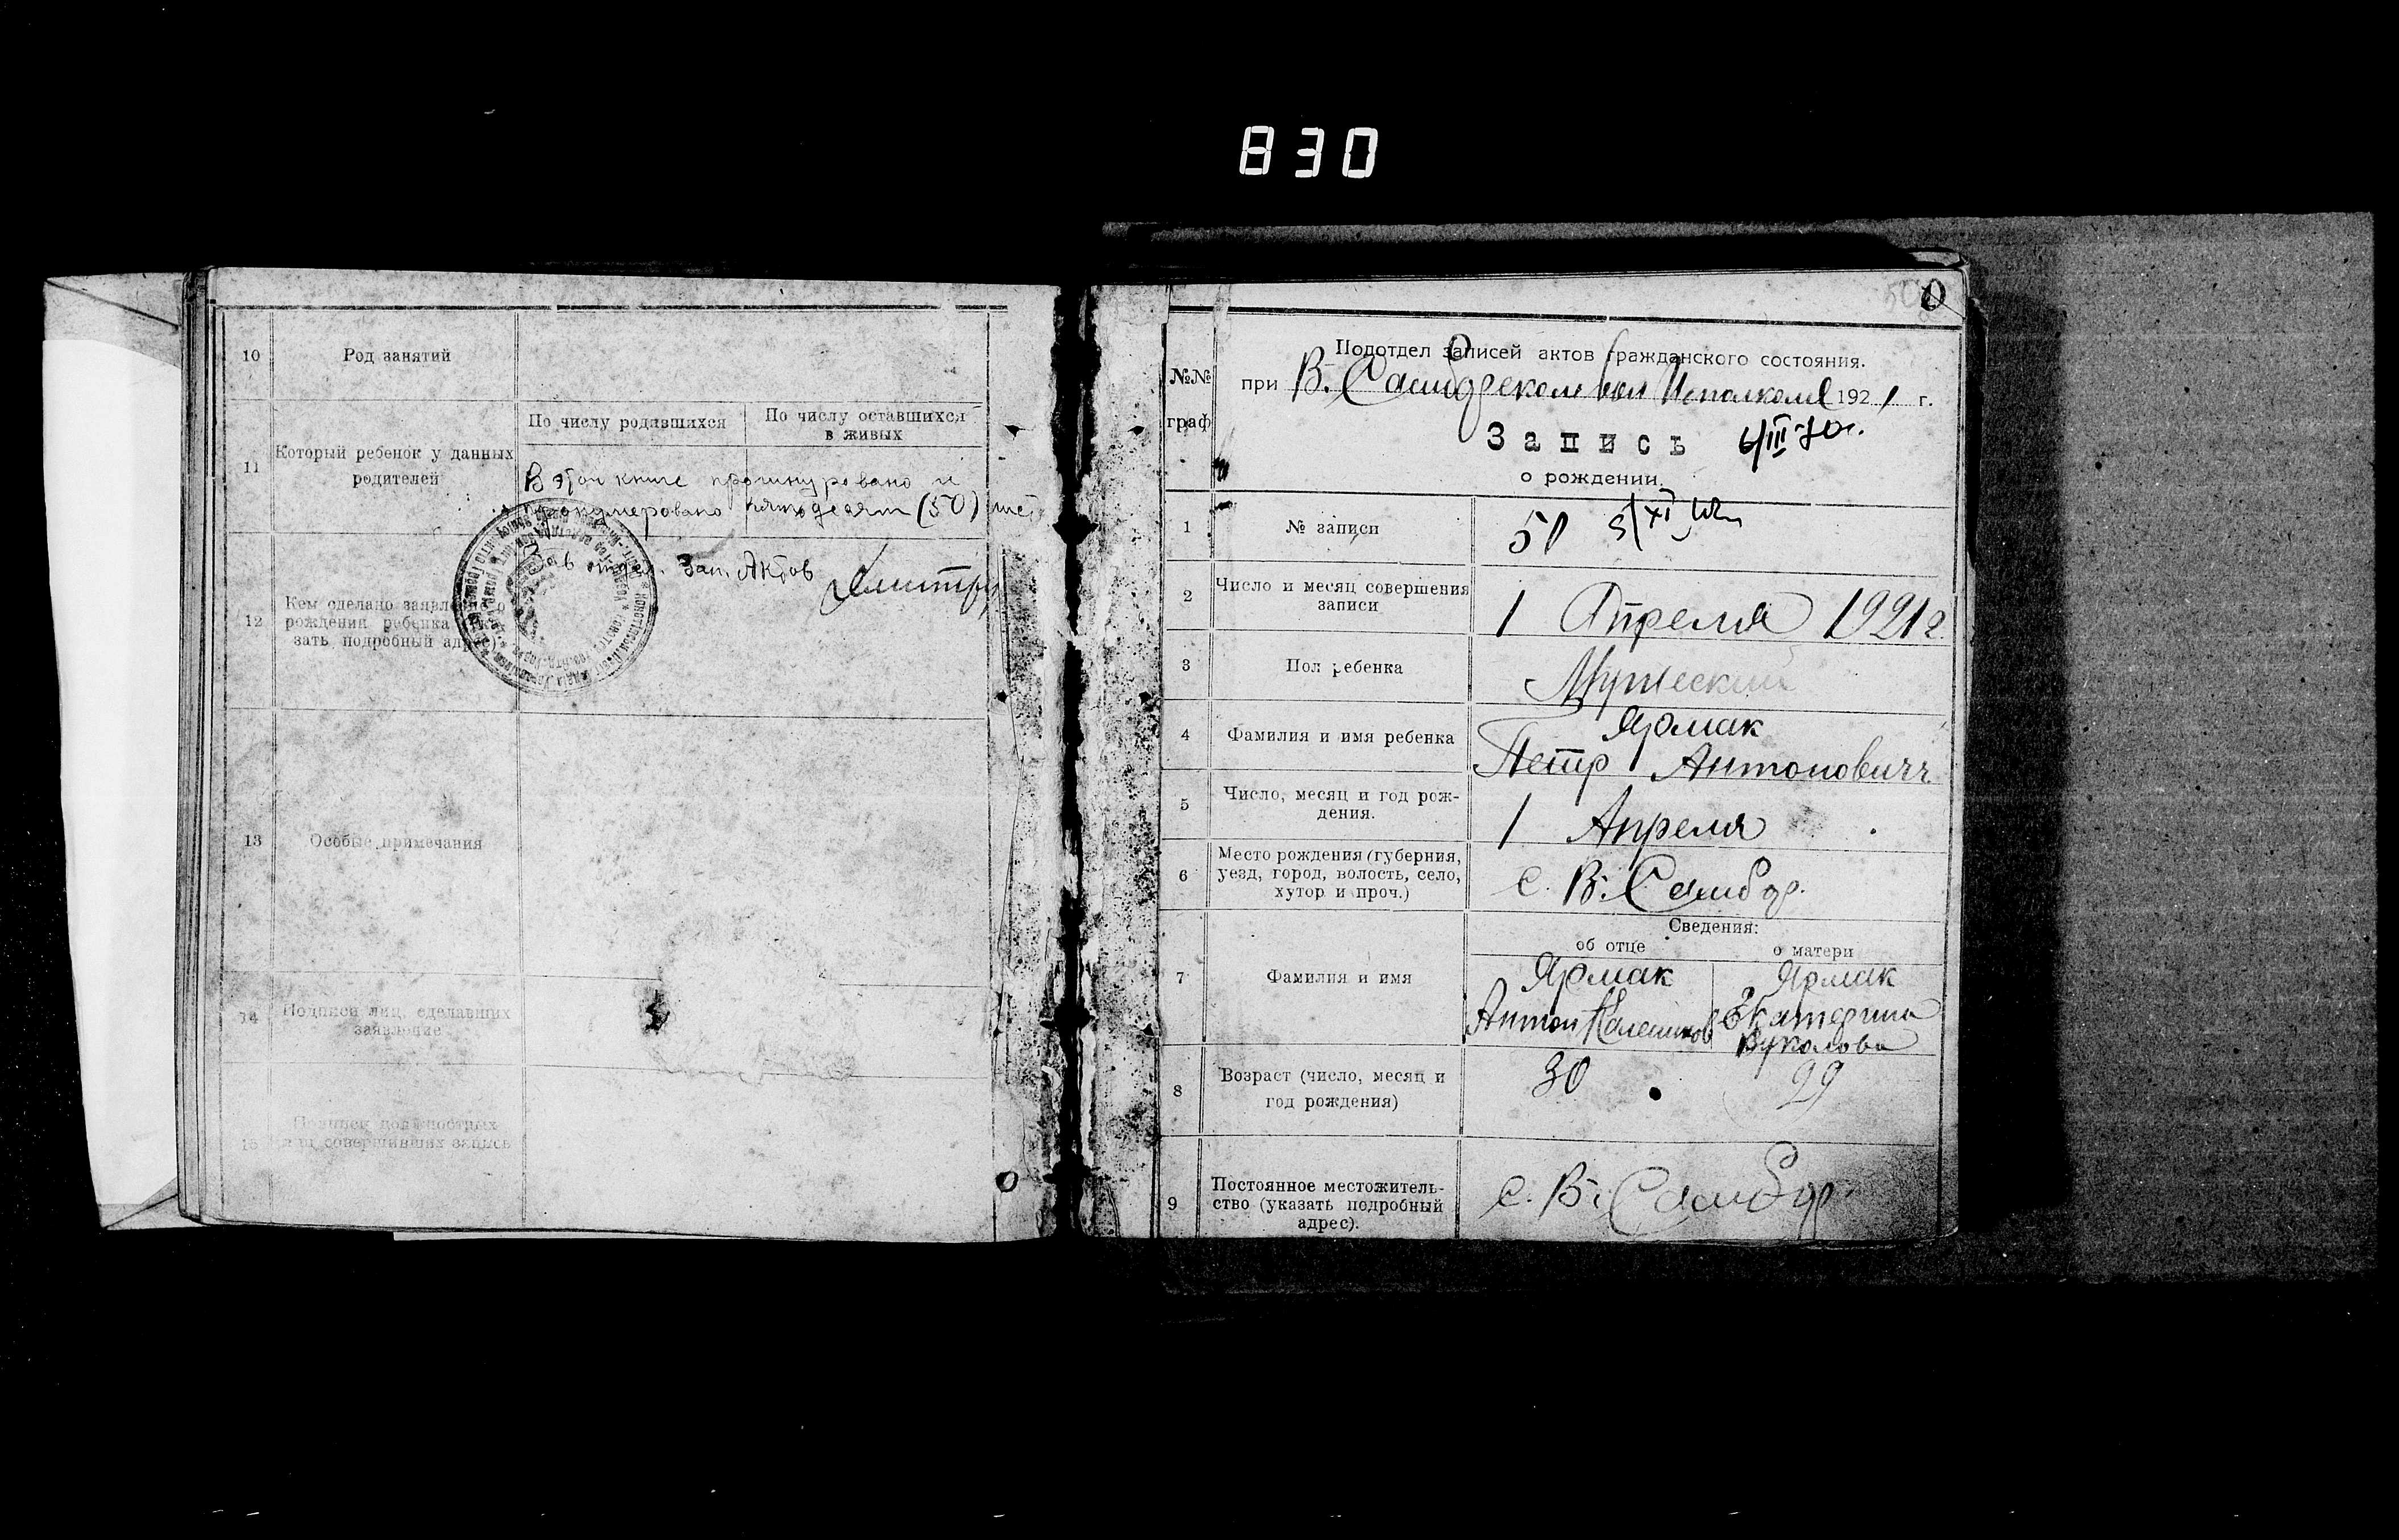 830
10 Род занятий
11 Который ребенок у данных
родителей
По числу родившихся
По числу оставшихся
в живых
В этой книге прошнуровано и
пронумеровано пятьдесят (50)
Зав отдел. Зап. Актов
12 Кем сделано заявление о
рождении ребенка
зать подробный адрес)
13 Особые примечания
14 Подписи лиц, сделавших
заявление
15 Подписи должностных
лиц совершивших запись
№№
граф
Подотдел записей актов гражданского состояния.
при В. Самборском Вол Исполкоме 1921 г.
Запись 6/III-70г.
о рождении.
1 № записи 50
2 Число и месяц совершения
записи 1 Апреля 1921 г
3 Пол ребенка Мужеский
4 Фамилия и имя ребенка Ярмак
Петр Антонович
5 Число, месяц и год рож-
дения. 1 Апреля
6 Место рождения (губерния,
уезд, город, волость, село,
хутор и проч.) с. В. Самбор.
Сведения:
об отце о матери
7 Фамилия и имя
Ярмак
Антон
Ярмак
Екатерина
Вуколова
8 Возраст (число, месяц и
год рождения) 30 29
9 Постоянное местожитель-
ство (указать подробный
адрес). с. В. Самбор.